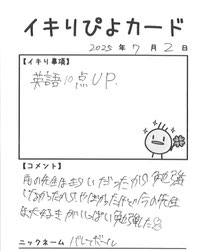 イキりぴよカード
2025年7月2日
【イキり事項】
英語10点UP.
【コメント】
前の先生はきらいだったから勉強
しなかったから、やばかったけど今の先生
は大好きだからいっぱい勉強した
ニックネーム バレーボール